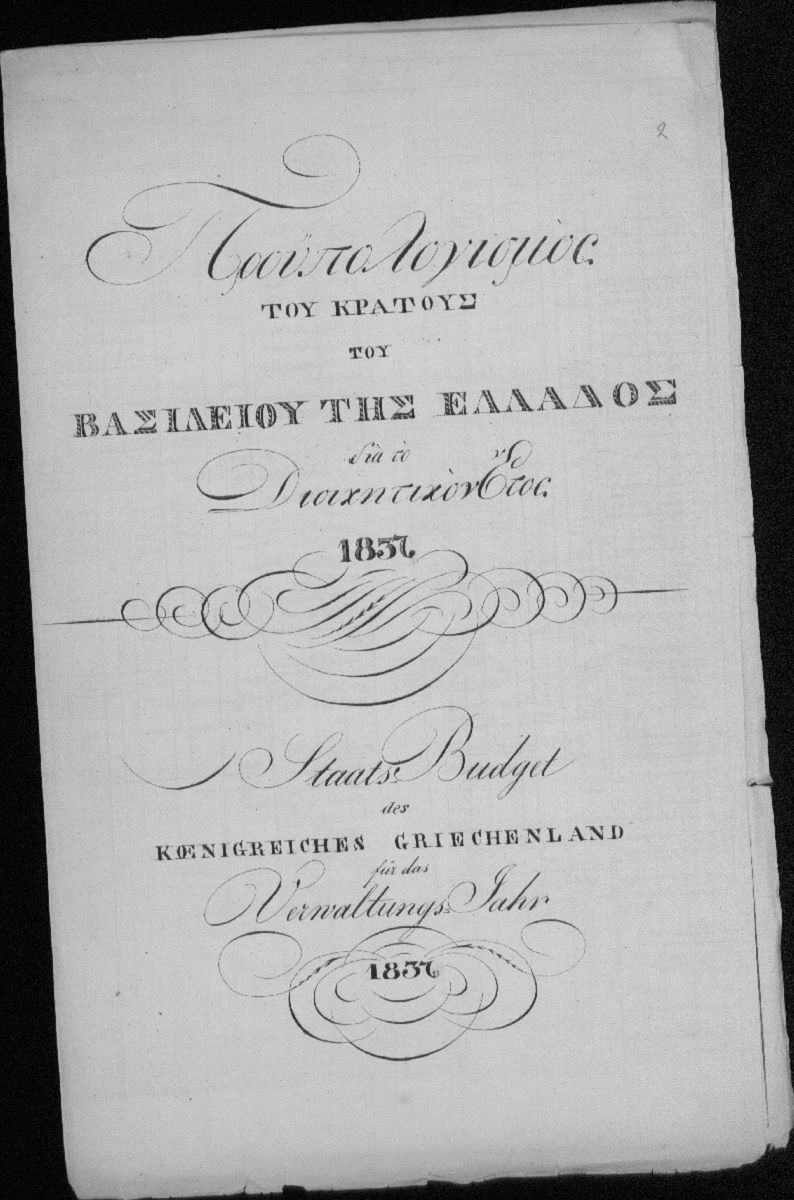 2
Προϋπολογισμὸς
ΤΟΥ ΚΡΑΤΟΥΣ
ΤΟΥ
ΒΑΣΙΛΕΙΟΥ ΤΗΣ ΕΛΛΑΔΟΣ
διὰ τὸ
Διοικητικὸν Ἔτος
1837
Staats-Budget
des
KŒNIGREICHES GRIECHENLAND
für das
Verwaltungs-Jahr
1837